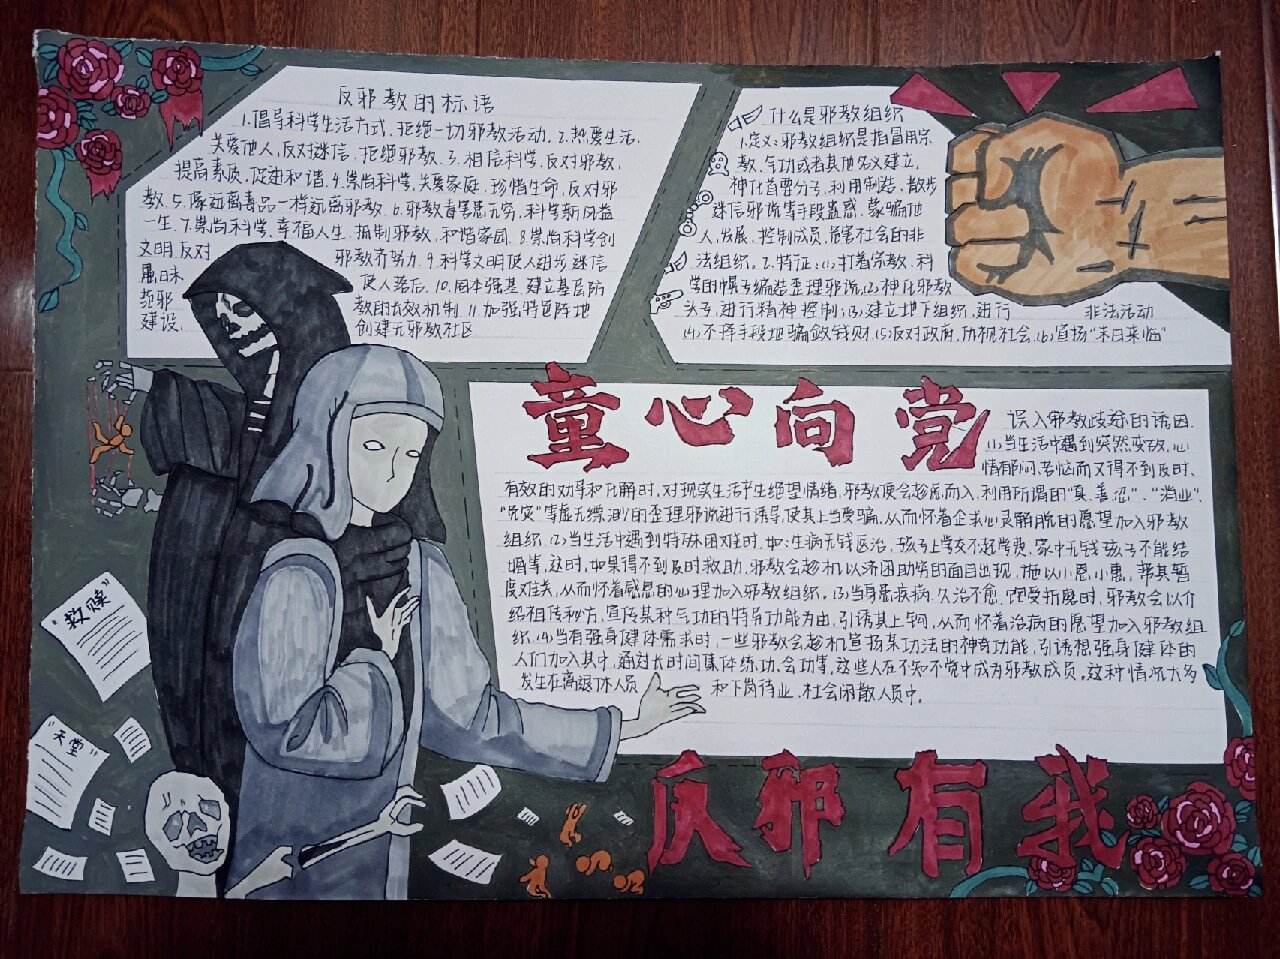 反邪教的标语
1.倡导科学生活方式,拒绝一切邪教活动.2.热爱生活,
关爱他人,反对迷信,拒绝邪教.3.相信科学,反对邪教,
提高素质,促进和谐.4.崇尚科学,关爱家庭,珍惜生命,反对邪
教.5.像远离毒品一样远离邪教.6.邪教毒害思无穷,科学新风益
一生.7.崇尚科学,幸福人生,抵制邪教,和谐家园.8.崇尚科学创
文明,反对
邪教齐努力.9.科学文明使人进步迷信
愚昧
使人落后.10.固本强基,建立基层防
范邪
教的长效机制.11.加强特色阵地
建设,
创建无邪教社区
什么是邪教组织
1.定义:邪教组织是指冒用宗
教、气功或者其他名义建立,
神化首要分子,利用制造、散步
迷信邪说等手段蛊惑、蒙骗他
人,发展、控制成员,危害社会的非
法组织.2.特征:(1)打着宗教、科
学的幌子编造歪理邪说;(2)神化邪教
头子,进行精神控制;(3)建立地下组织,进行 非法活动
(4)不择手段地骗敛钱财.(5)反对政府,仇视社会.(6)宣扬"末日来临"
童心向党
误入邪教歧途的诱因
(1)当生活中遇到突然变故,心
情郁闷、苦恼而又得不到及时、
有效的劝导和化解时,对现实生活产生绝望情绪,邪教便会趁虚而入,利用所谓的"真、善、忍"、"消业"、
"免灾"等虚无缥缈的歪理邪说进行诱导,使其上当受骗,从而怀着企求心灵解脱的愿望加入邪教
组织.(2)当生活中遇到特殊困难时,如:生病无钱医治,孩子上学交不起学费,家中无钱孩子不能结
婚等,这时,如果得不到及时救助,邪教会趁机以济困助侉的面目出现,施以小恩小惠,帮其暂
度难关,从而怀着感恩的心理加入邪教组织.(3)当身患疾病,久治不愈,饱受折磨时,邪教会以介
绍祖传秘方,宣传某种气功的特异功能为由,引诱其上钩,从而怀着治病的愿望加入邪教组
织.(4)当有强身健体需求时,一些邪教会趁机宣扬某功法的神奇功能,引诱想强身健体的
人们加入其中,通过长时间集体练功、会功等,这些人在不知不觉中成为邪教成员,这种情况大多
发生在离退休人员 和下岗待业、社会闲散人员中.
"救赎"
"天堂"
反邪有我